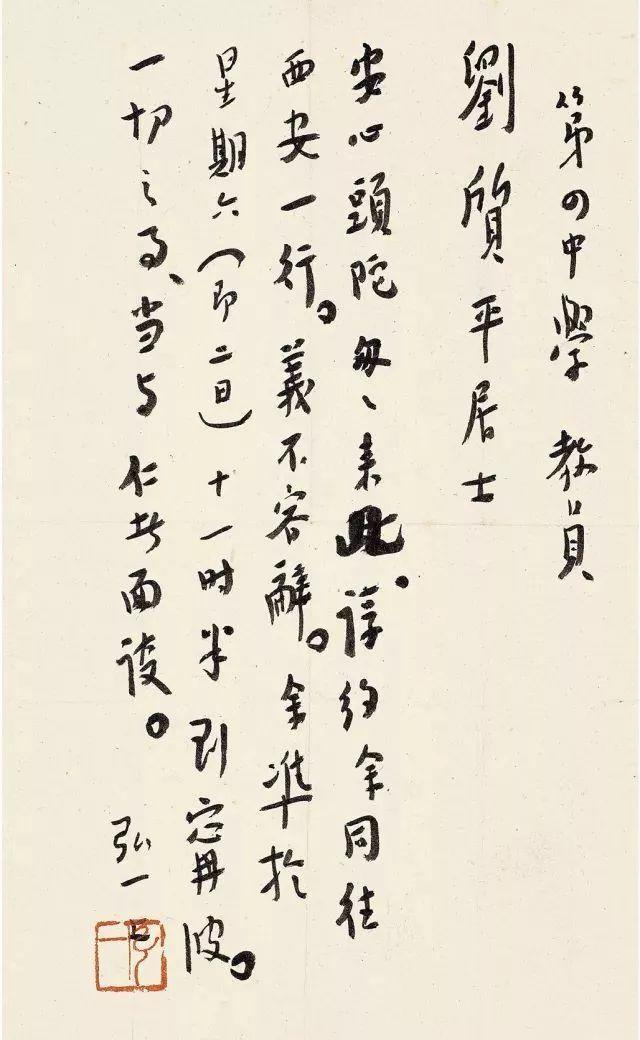 第四中學 教員
劉質平居士
安心頭陀匆々來此。諄約余同往
西安一行。義不容辭。余準於
星期六（即二日）十一时半到甯波。
一切之事、当与仁者面談。
弘一上